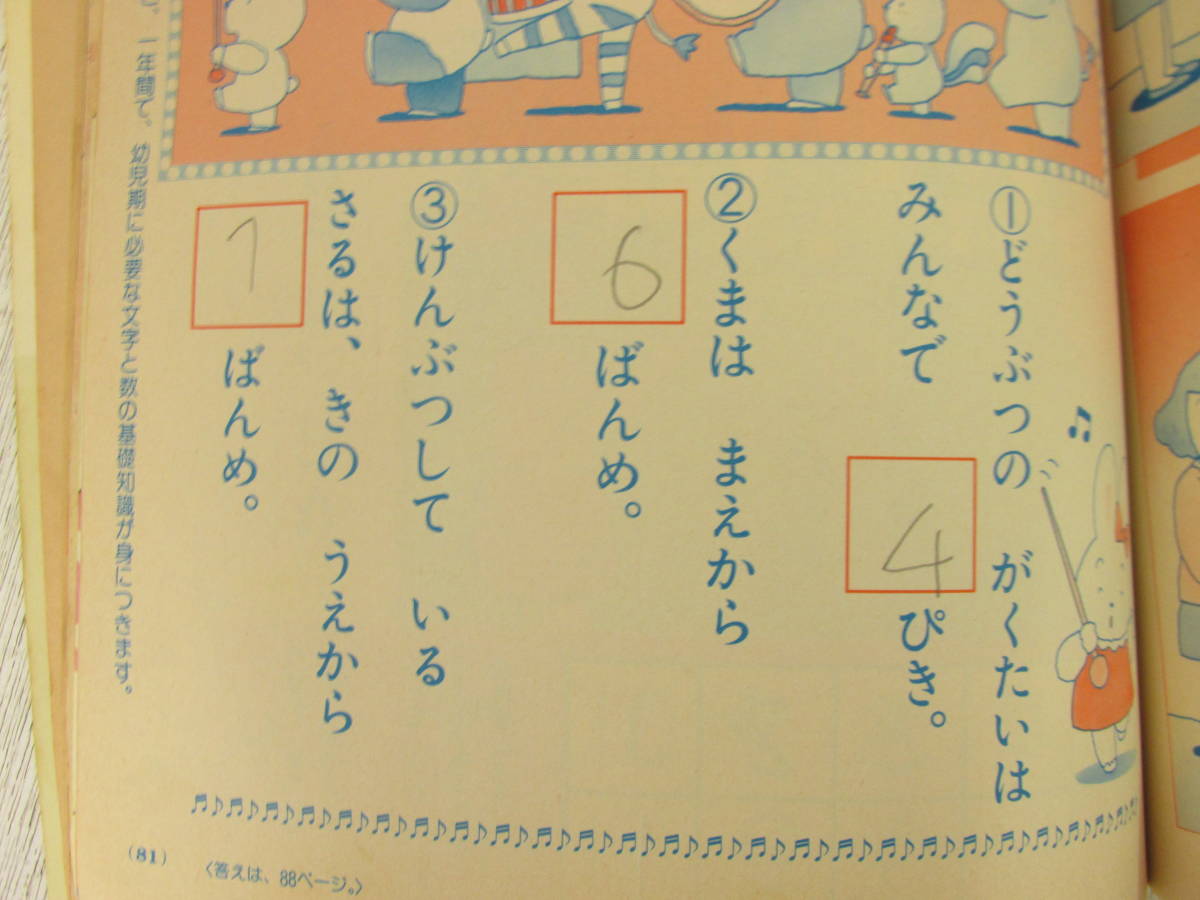 ①どうぶつの がくたいは
みんなで 4 ぴき。
②くまは まえから
6 ばんめ。
③けんぶつして いる
さるは、 きの うえから
1 ばんめ。
一年間で、幼児期に必要な文字と数の基礎知識が身につきます。
(81)
〈答えは、88ページ。〉